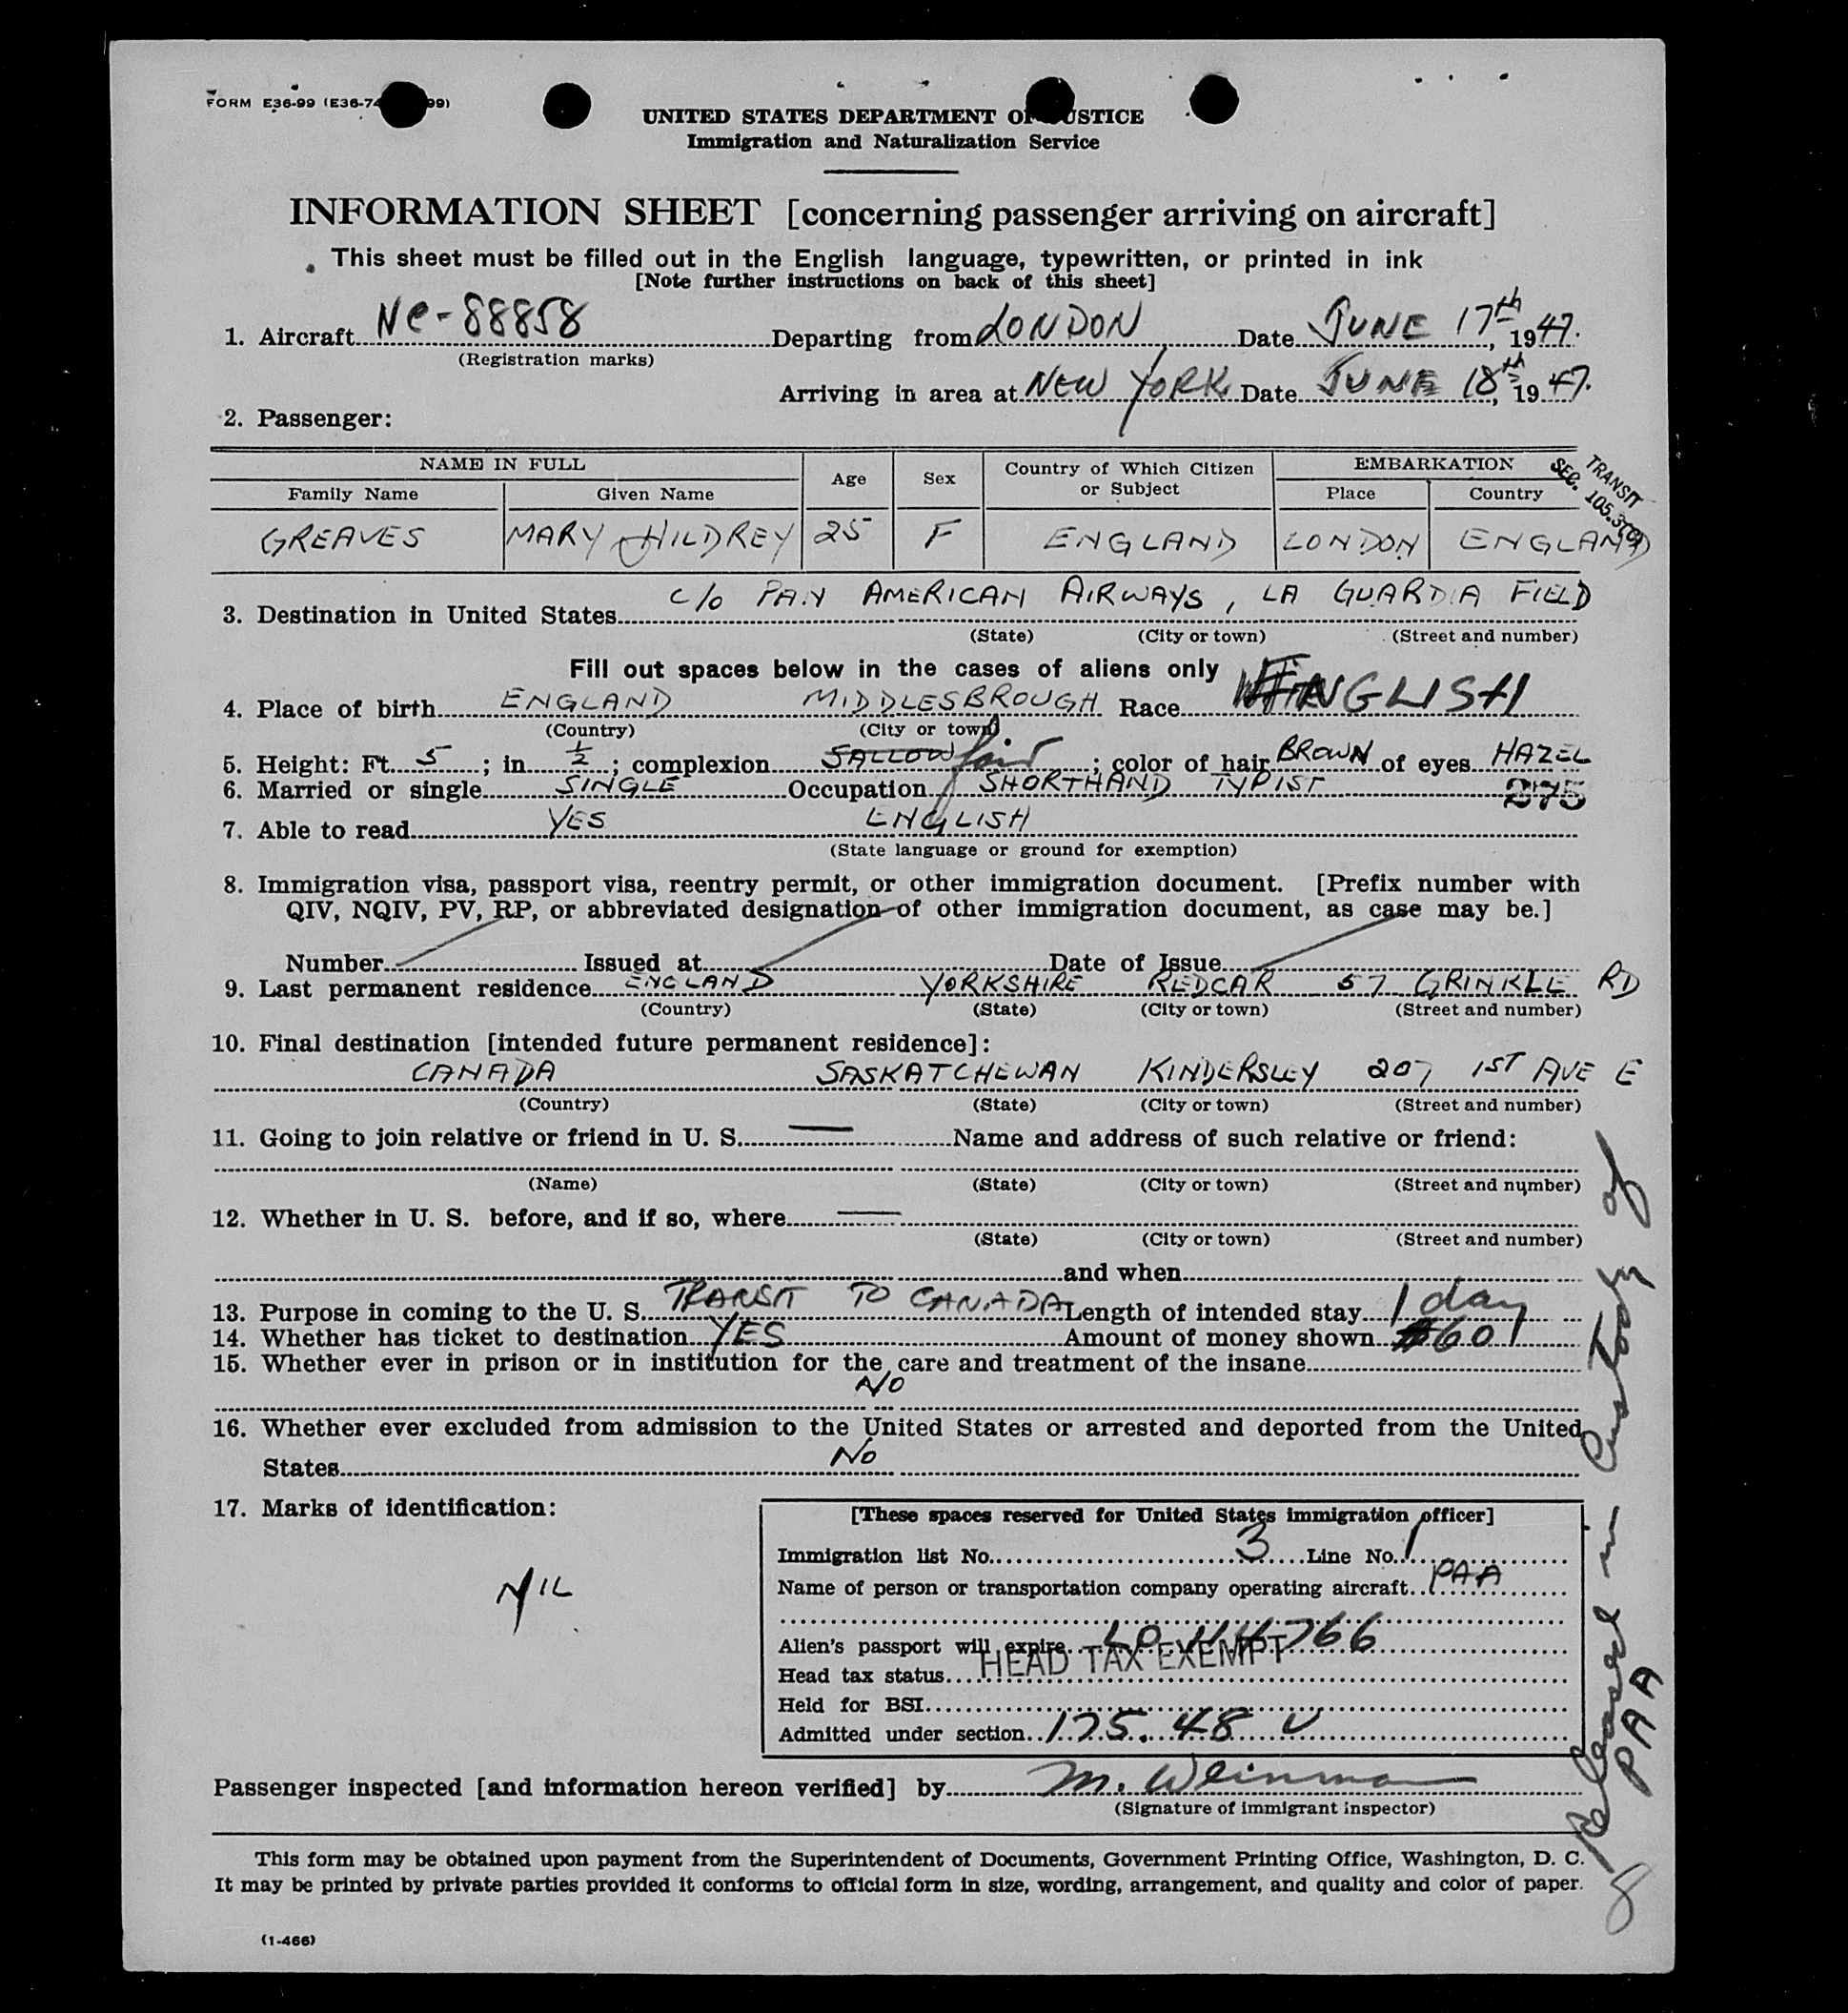 FORM E36-99 (E36-74 99)
UNITED STATES DEPARTMENT OF JUSTICE
Immigration and Naturalization Service
INFORMATION SHEET [concerning passenger arriving on aircraft]
This sheet must be filled out in the English language, typewritten, or printed in ink
[Note further instructions on back of this sheet]
1. Aircraft NC-88858 Departing from LONDON Date JUNE 17th, 1947.
(Registration marks)
Arriving in area at NEW YORK Date JUNE 18th, 1947.
2. Passenger:
NAME IN FULL Age Sex Country of Which Citizen or Subject EMBARKATION
Family Name Given Name Place Country
TRANSIT
SEC. 105.3(C)
GREAVES MARY HILDREY 25 F ENGLAND LONDON ENGLAND
3. Destination in United States c/o PAN AMERICAN AIRWAYS, LA GUARDIA FIELD
(State) (City or town) (Street and number)
Fill out spaces below in the cases of aliens only
4. Place of birth ENGLAND MIDDLESBROUGH Race ENGLISH
(Country) (City or town)
5. Height: Ft. 5; in. ½; complexion SALLOW fair; color of hair BROWN of eyes HAZEL
6. Married or single SINGLE Occupation SHORTHAND TYPIST 275
7. Able to read YES ENGLISH
(State language or ground for exemption)
8. Immigration visa, passport visa, reentry permit, or other immigration document. [Prefix number with
QIV, NQIV, PV, RP, or abbreviated designation of other immigration document, as case may be.]
Number Issued at Date of Issue
9. Last permanent residence ENGLAND YORKSHIRE REDCAR 57 GRINKLE RD
(Country) (State) (City or town) (Street and number)
10. Final destination [intended future permanent residence]:
CANADA SASKATCHEWAN KINDERSLEY 207 1ST AVE E
(Country) (State) (City or town) (Street and number)
11. Going to join relative or friend in U. S. — Name and address of such relative or friend:
(Name) (State) (City or town) (Street and number)
12. Whether in U. S. before, and if so, where —
(State) (City or town) (Street and number)
and when
13. Purpose in coming to the U. S. TRANSIT TO CANADA Length of intended stay 1 day
14. Whether has ticket to destination YES Amount of money shown $60
15. Whether ever in prison or in institution for the care and treatment of the insane
NO
16. Whether ever excluded from admission to the United States or arrested and deported from the United
States No
17. Marks of identification:
NIL
[These spaces reserved for United States immigration officer]
Immigration list No. 3 Line No. 1
Name of person or transportation company operating aircraft PAA
Alien's passport will expire
Head tax status HEAD TAX EXEMPT
Held for BSI
Admitted under section 175.48 V
Passenger inspected [and information hereon verified] by M. Weinman
(Signature of immigrant inspector)
Released in Custody of
PAA
This form may be obtained upon payment from the Superintendent of Documents, Government Printing Office, Washington, D. C.
It may be printed by private parties provided it conforms to official form in size, wording, arrangement, and quality and color of paper.
(1-466)